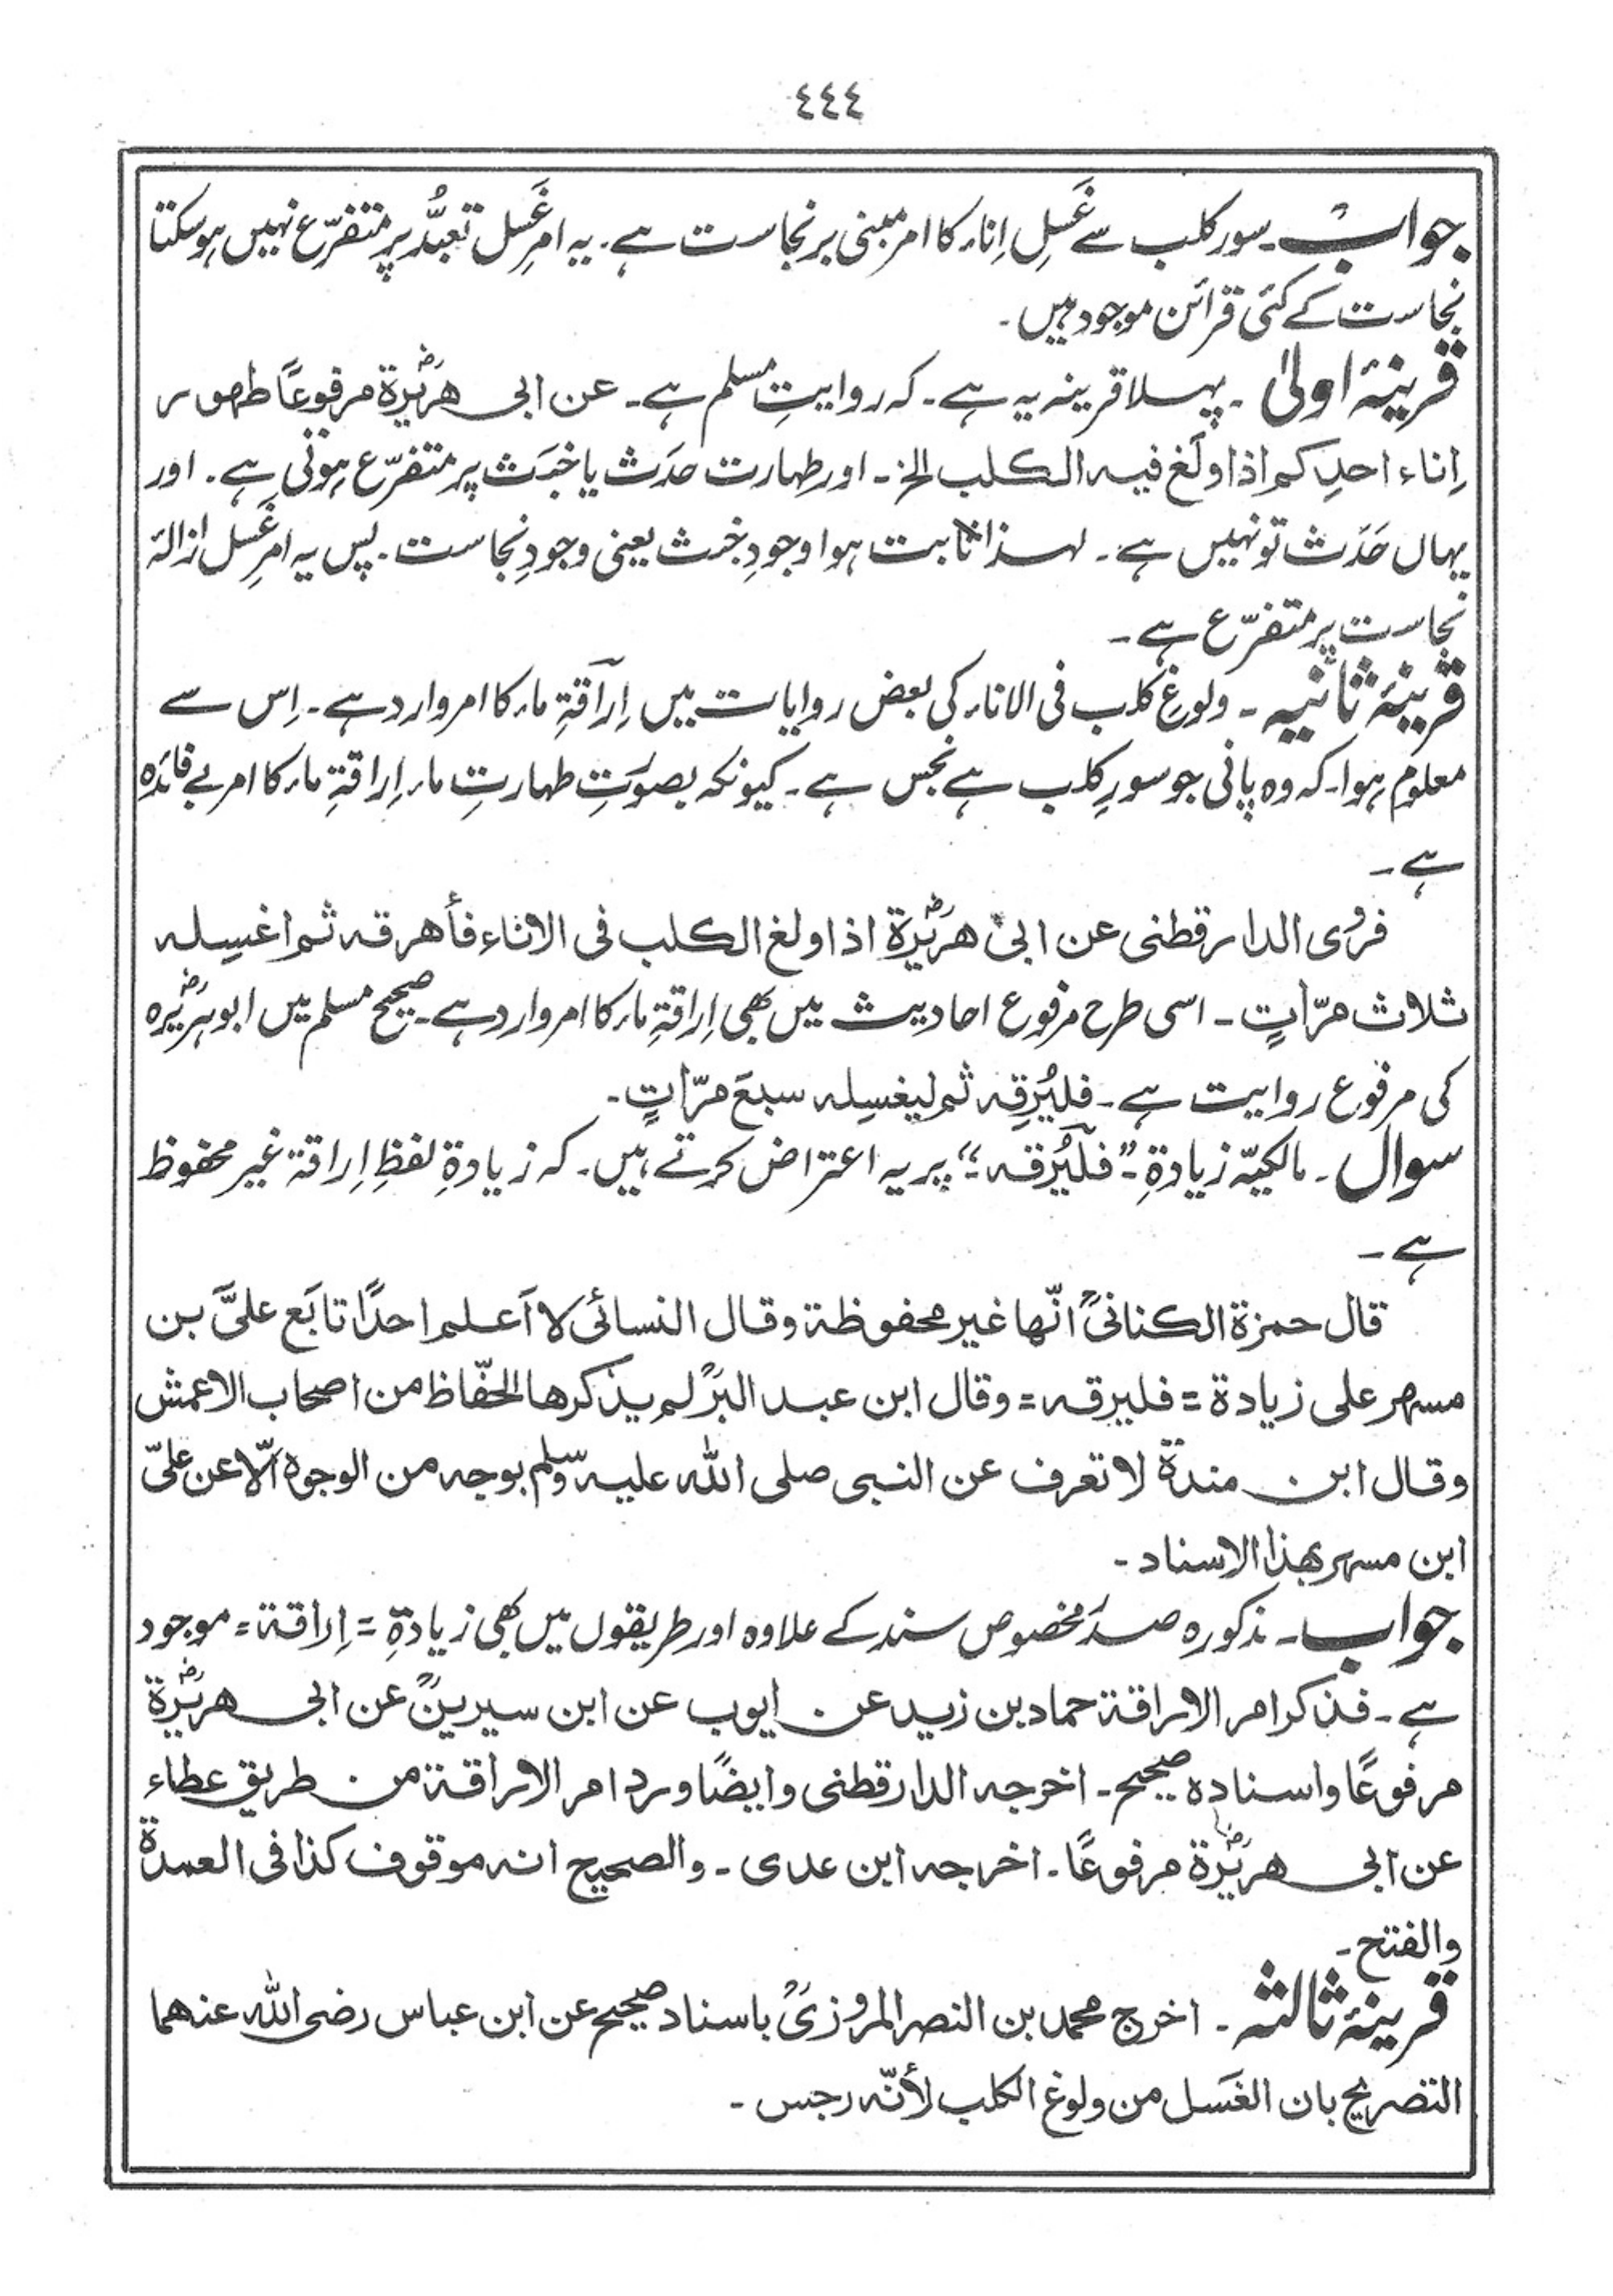 ٤٤٤
جواب ۔ سور کلب سے غَسلِ اِناء کا امر مبنی بر نجاست ہے۔ یہ امرِ غَسل تعبُّد پر متفرّع نہیں ہوسکتا
نجاست کے کئی قرائن موجود ہیں۔
قرینۂ اولیٰ ۔ پہلا قرینہ یہ ہے۔ کہ روایتِ مسلم ہے۔ عن ابی ھریرۃؓ مرفوعًا طھور
اِناء احدِکم اذا ولَغ فیہ الکلب الخ ۔ اور طہارت حدَث یا خبَث پر متفرّع ہوتی ہے۔ اور
یہاں حَدَث تو نہیں ہے۔ لہذا ثابت ہوا وجودِ خبث یعنی وجودِ نجاست۔ پس یہ امرِ غَسل ازالۂ
نجاست پر متفرّع ہے۔
قرینۂ ثانیہ ۔ ولوغِ کلب فی الاناء کی بعض روایات میں اِراقۃِ ماء کا امر وارد ہے۔ اِس سے
معلوم ہوا۔ کہ وہ پانی جو سورِ کلب ہے نجس ہے۔ کیونکہ بصورتِ طہارتِ ماء اِراقۃِ ماء کا امر بے فائدہ
ہے۔
فروٰی الدارقطنی عن ابی ھریرۃؓ اذا ولغ الکلب فی الاناء فأھرقہ ثم اغسِلہ
ثلاث مرّاتٍ ۔ اسی طرح مرفوع احادیث میں بھی اِراقۃِ ماء کا امر وارد ہے۔ صحیح مسلم میں ابوہریرہؓ
کی مرفوع روایت ہے۔ فلیُرِقہ ثم لیغسِلہ سبعَ مرّاتٍ۔
سوال ۔ مالکیّہ زیادۃِ ”فلیُرقہ“ پر یہ اعتراض کرتے ہیں۔ کہ زیادۃِ لفظِ اِراقۃ غیر محفوظ
ہے۔
قال حمزۃ الکنانیؒ انّھا غیر محفوظۃ وقال النسائیؒ لا اَعلم احدًا تابَع علیَّ بن
مسھر علی زیادۃ = فلیرقہ = وقال ابن عبد البرؒ لم یذکرھا الحفّاظ من اصحاب الاعمش
وقال ابن مندۃ لا تعرف عن النبی صلی اللہ علیہ وسلم بوجہ من الوجوہ الّا عن علیّ
ابن مسھر بھذا الاسناد۔
جواب ۔ مذکورہ صدر مخصوص سند کے علاوہ اور طریقوں میں بھی زیادۃِ = اِراقۃ = موجود
ہے۔ فذکر امر الاراقۃ حماد بن زید عن ایوب عن ابن سیرینؒ عن ابی ھریرۃؓ
مرفوعًا واسنادہ صحیح۔ اخرجہ الدارقطنی وایضًا ورد امر الاراقۃ من طریق عطاء
عن ابی ھریرۃؓ مرفوعًا۔ اخرجہ ابن عدی۔ والصحیح انہ موقوف کذا فی العمدۃ
والفتح۔
قرینۂ ثالثہ ۔ اخرج محمد بن النصر المروزیؒ باسناد صحیح عن ابن عباس رضی اللہ عنھما
التصریح بان الغَسل من ولوغ الکلب لأنّہ رجس۔